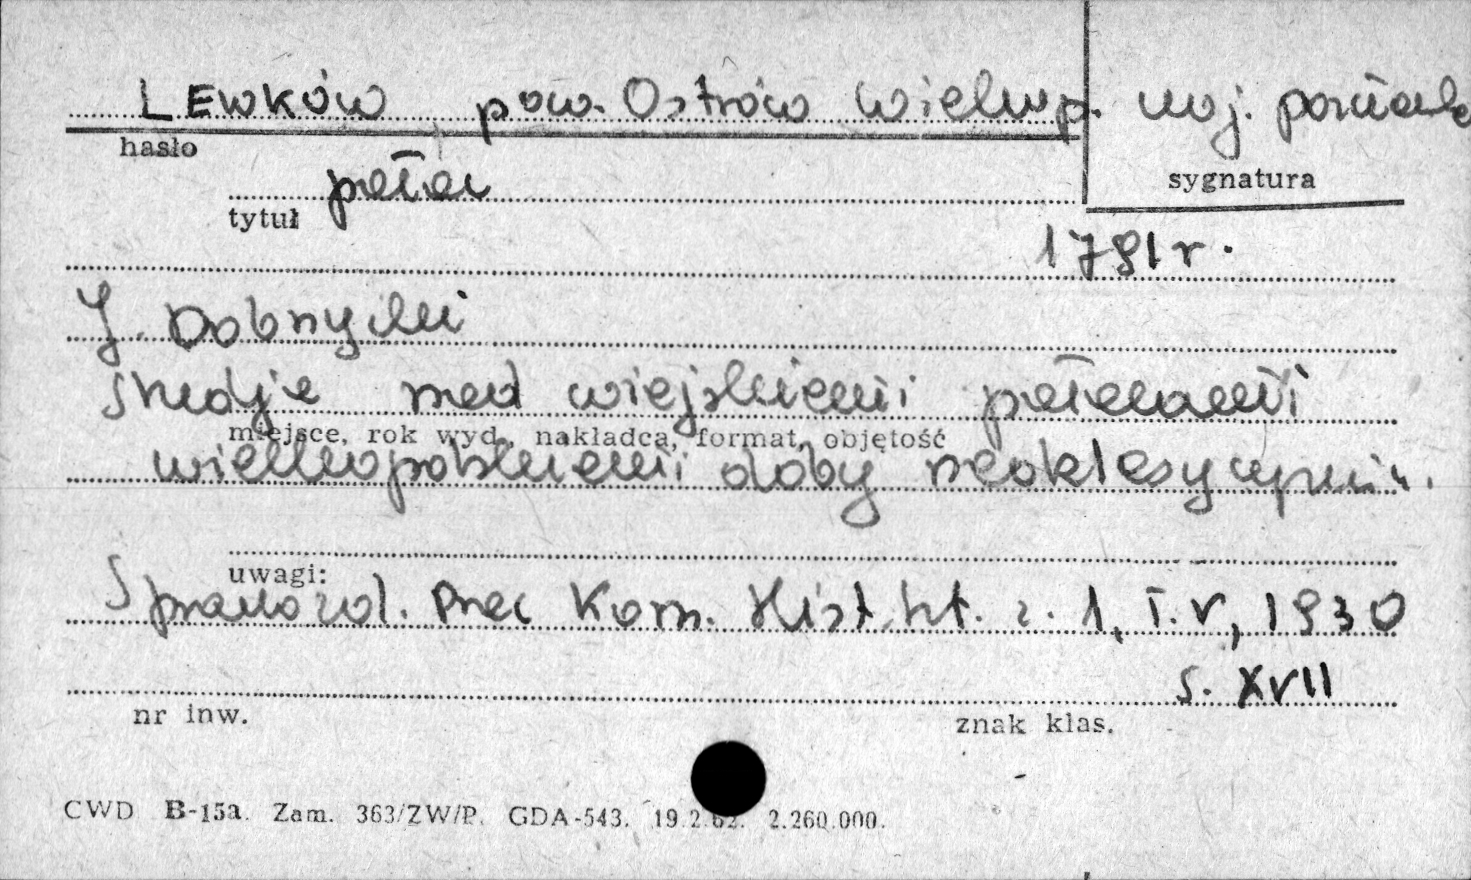 LEWKÓW pow. Ostrów Wielkop. woj. poznańsk
hasło
sygnatura
pałac
tytuł
1791 r.
J. Dobrzycki
Studja nad wiejskiemi pałacami
miejsce, rok wyd., nakładca, format, objętość
wielkopolskiemi doby neoklasycyzmu.
uwagi:
Sprawozd. Prac Kom. Hist. szt. z. 1, T. V, 1930
s. XVII
nr inw.
znak klas.
CWD B-15a. Zam. 363/ZW/P. GDA-543. 19.2.62. 2.260.000.